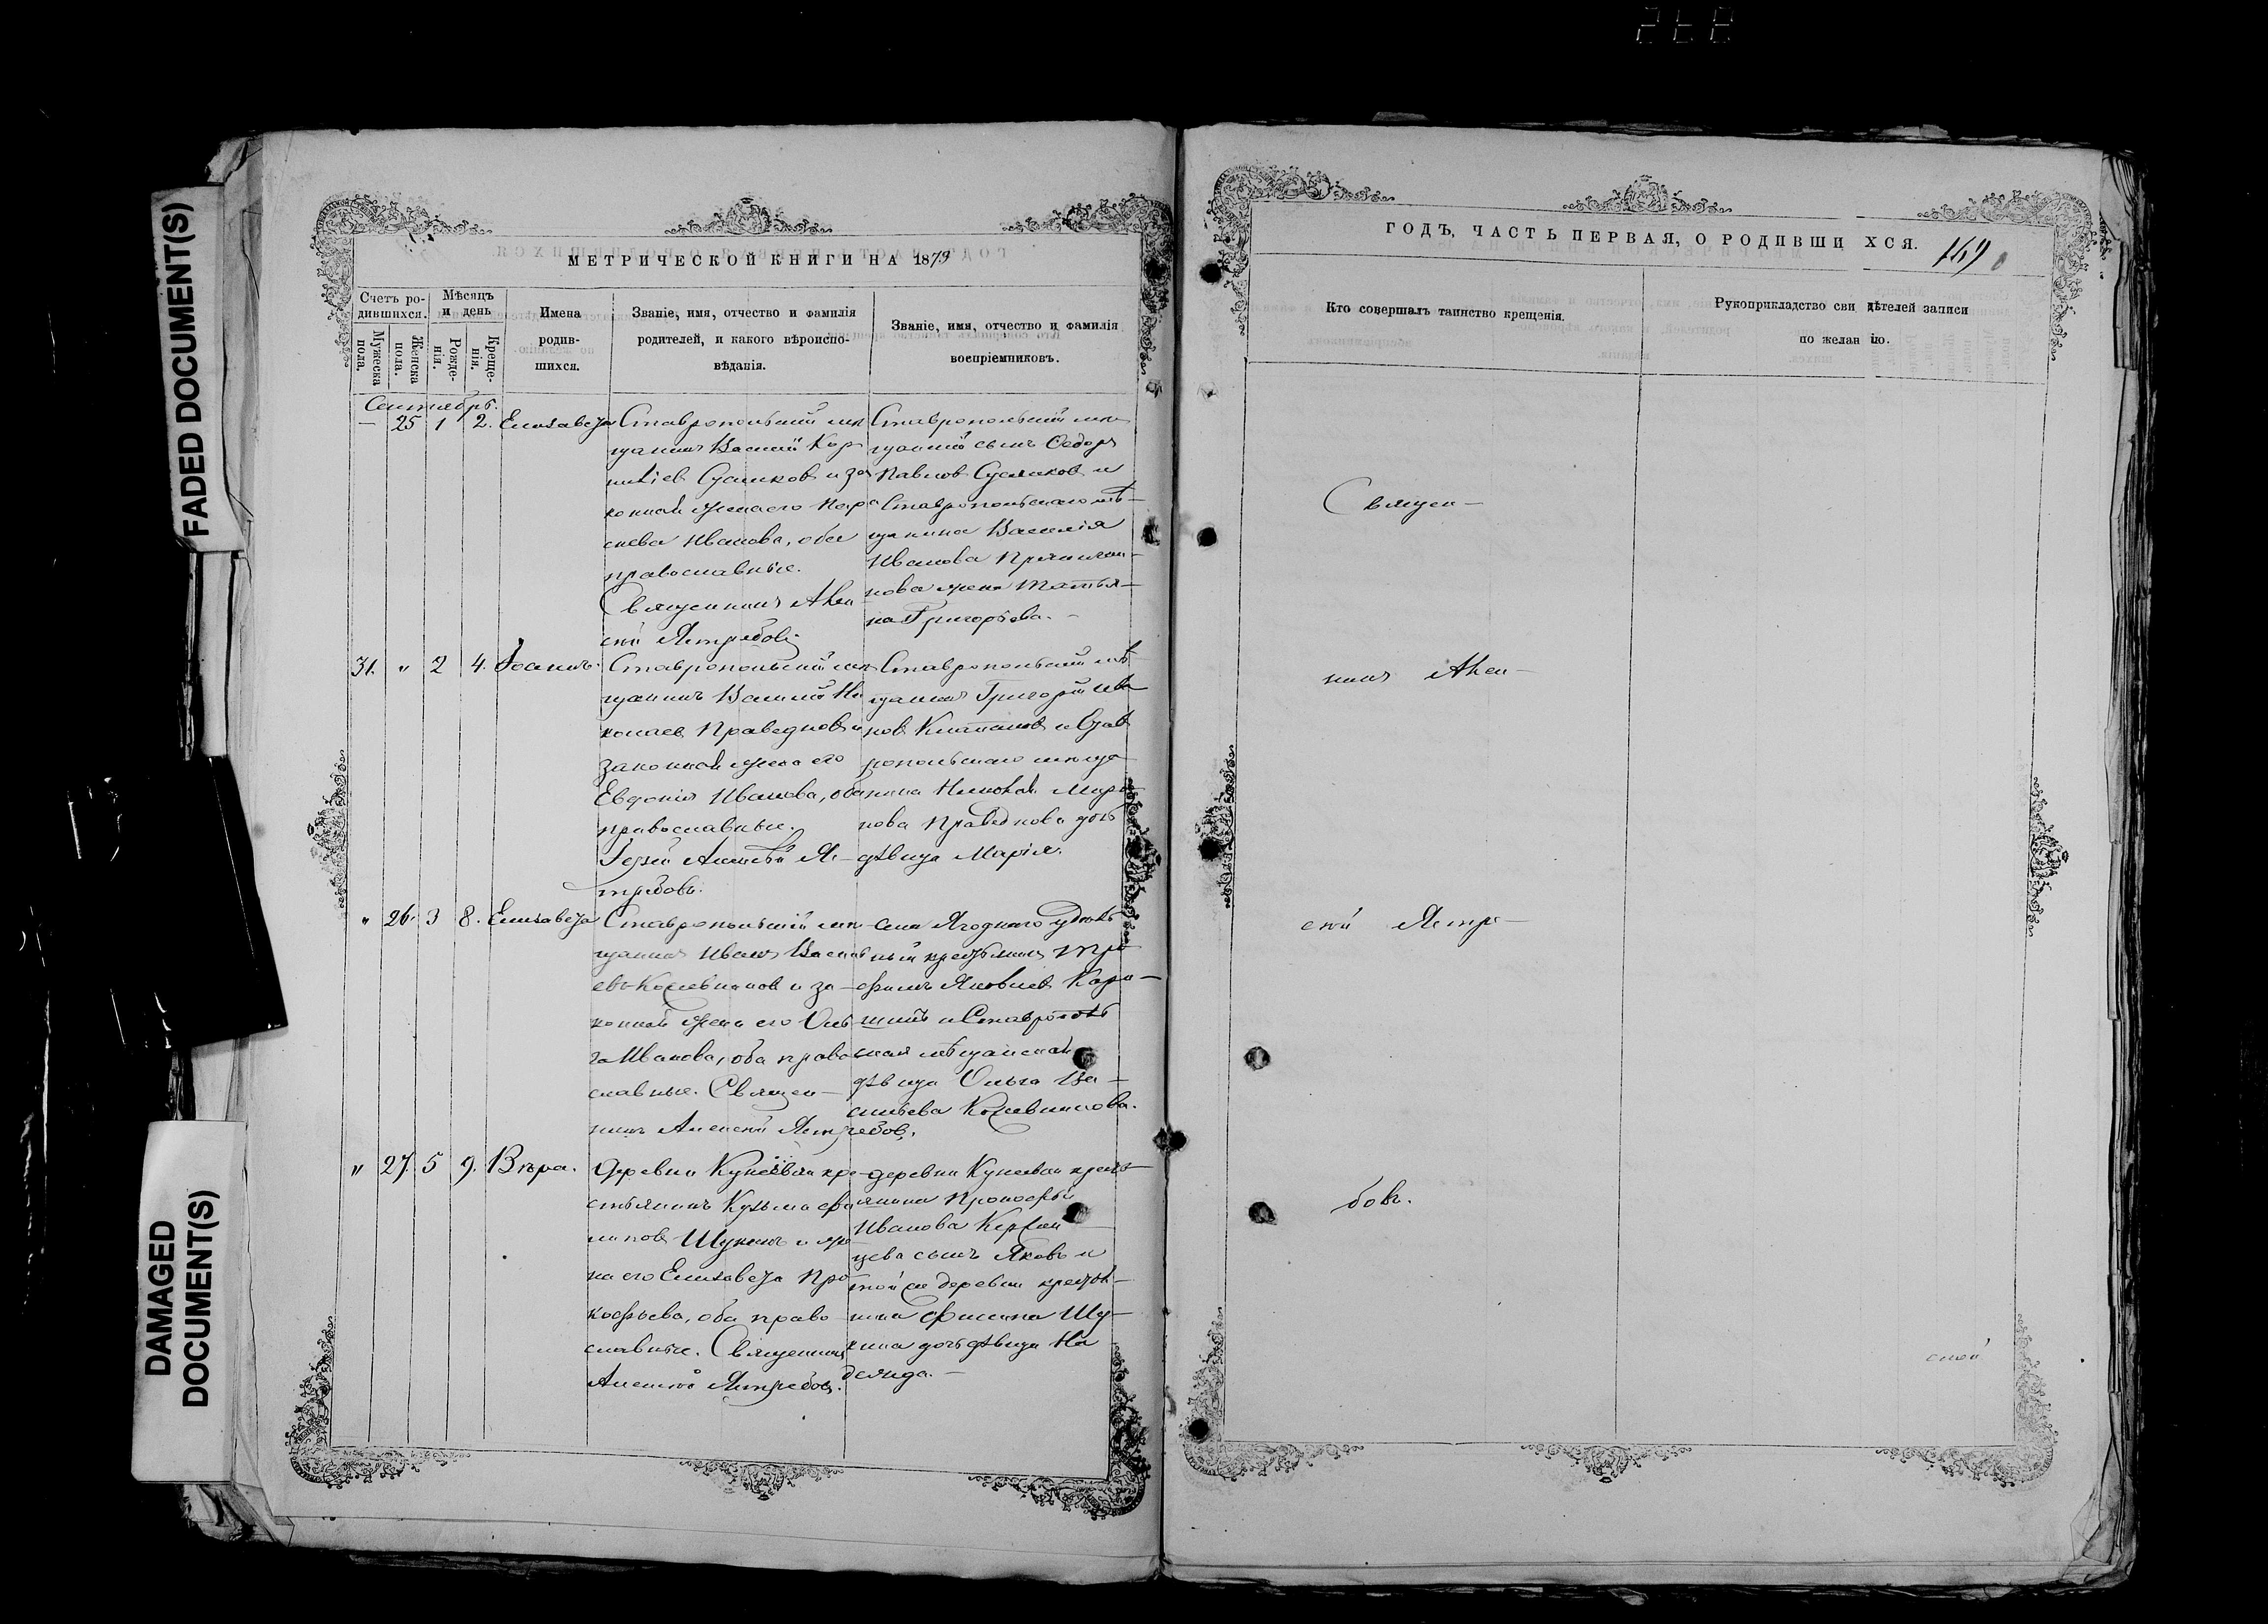 FADED DOCUMENT(S)
DAMAGED
DOCUMENT(S)
МЕТРИЧЕСКОЙ КНИГИ НА 1879
Счетъ ро-
дившихся.
Мужеска
пола.
Женска
пола.
Мѣсяцъ
и день
Рожде-
нія.
Креще-
нія.
Имена
родив-
шихся.
Званіе, имя, отчество и фамилія
родителей, и какого вѣроиспо-
вѣданія.
Званіе, имя, отчество и фамилія
воспріемниковъ.
Сентябрь.
25 1 2. Елизавета
Ставропольскій мѣ
щанинъ Василій Кор
нилiев Сусликов и за
конная жена его Пара
скева Иванова, оба
православные.
Священникъ Алек
сѣй Ястребовъ.
Ставропольскій мѣ
щанскій сынъ Ѳедоръ
Павлов Сусликов и
Ставропольскаго мѣ-
щанина Василія
Иванова
жена Татья-
на Григорьева. -
31. " 2 4. Іоаннъ.
Ставропольскій мѣ
щанинъ Василій Ни
колаев Праведнов и
законная жена его
Евдокія Иванова, оба
православные.
Іерей Алексѣй Яс-
требовъ.
Ставропольскій мѣ-
щанинъ Григорій Ива
нов и Став
ропольскаго мѣща
нина Николая
нова Праведнова дочь
дѣвица Марія.
" 26. 3 8. Елизавета
Ставропольскій мѣ-
щанинъ Иванъ Василь
евъ Кожевников и за-
конная жена его Оль
га Иванова, оба право
славные. Священ-
никъ Алексѣй Ястребов.
села Ягоднаго удѣль
ный крестьянин Тро
фимъ Яковлев Каро-
и Ставрополь
ская мѣщанская
дѣвица Ольга Ва-
сильева Кожевникова.
" 27. 5 9. Вѣра.
Деревни Кунѣевки кре-
стьянинъ Кузьма Фи
липов Щукинъ и же
на его Елизавета Про
кофьева, оба право
славные. Священник
Алексѣй Ястребов.
деревни Кунеевки кресть
янина Прокофья
Иванова
цева сынъ Яковъ и
той же деревни кресть-
нина Филипа Щу-
кина дочь дѣвица На
дежда. -
ГОДЪ, ЧАСТЬ ПЕРВАЯ, О РОДИВШИ ХСЯ.
Кто совершалъ таинство крещенія.
Рукоприкладство сви дѣтелей записи
по желан ію.
Священ-
никъ Алек-
сѣй Ястре-
бовъ.